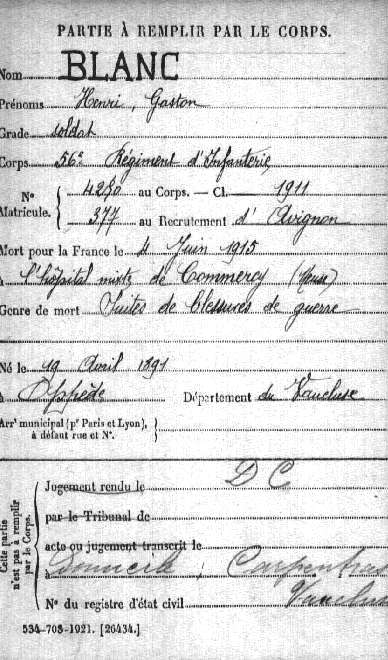 PARTIE À REMPLIR PAR LE CORPS.
Nom BLANC
Prénoms Henri, Gaston
Grade soldat
Corps 56e Régiment d'Infanterie
Nº Matricule. 4280 au Corps. — Cl. 1911
377 au Recrutement d'Avignon
Mort pour la France le 4 Juin 1915
à l'hôpital mixte de Commercy (Meuse)
Genre de mort Suites de blessures de guerre
Né le 19 Avril 1891
à Oppède Département du Vaucluse
Arrt municipal (pr Paris et Lyon),
à défaut rue et Nº.
Cette partie n'est pas à remplir par le Corps.
Jugement rendu le D C
par le Tribunal de
acte ou jugement transcrit le
à Carpentras
Nº du registre d'état civil Vaucluse
534-708-1921. [26434.]